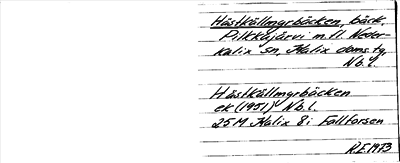 Hästkällmyrbäcken, bäck,
Pilkkajärvi m.fl. Neder-
kalix sn, Kalix doms.tg,
Nb.l.
Hästkällmyrbäcken
ek (1951) Nb.l.
25M Kalix 8i Fallforsen
R.E. 1973